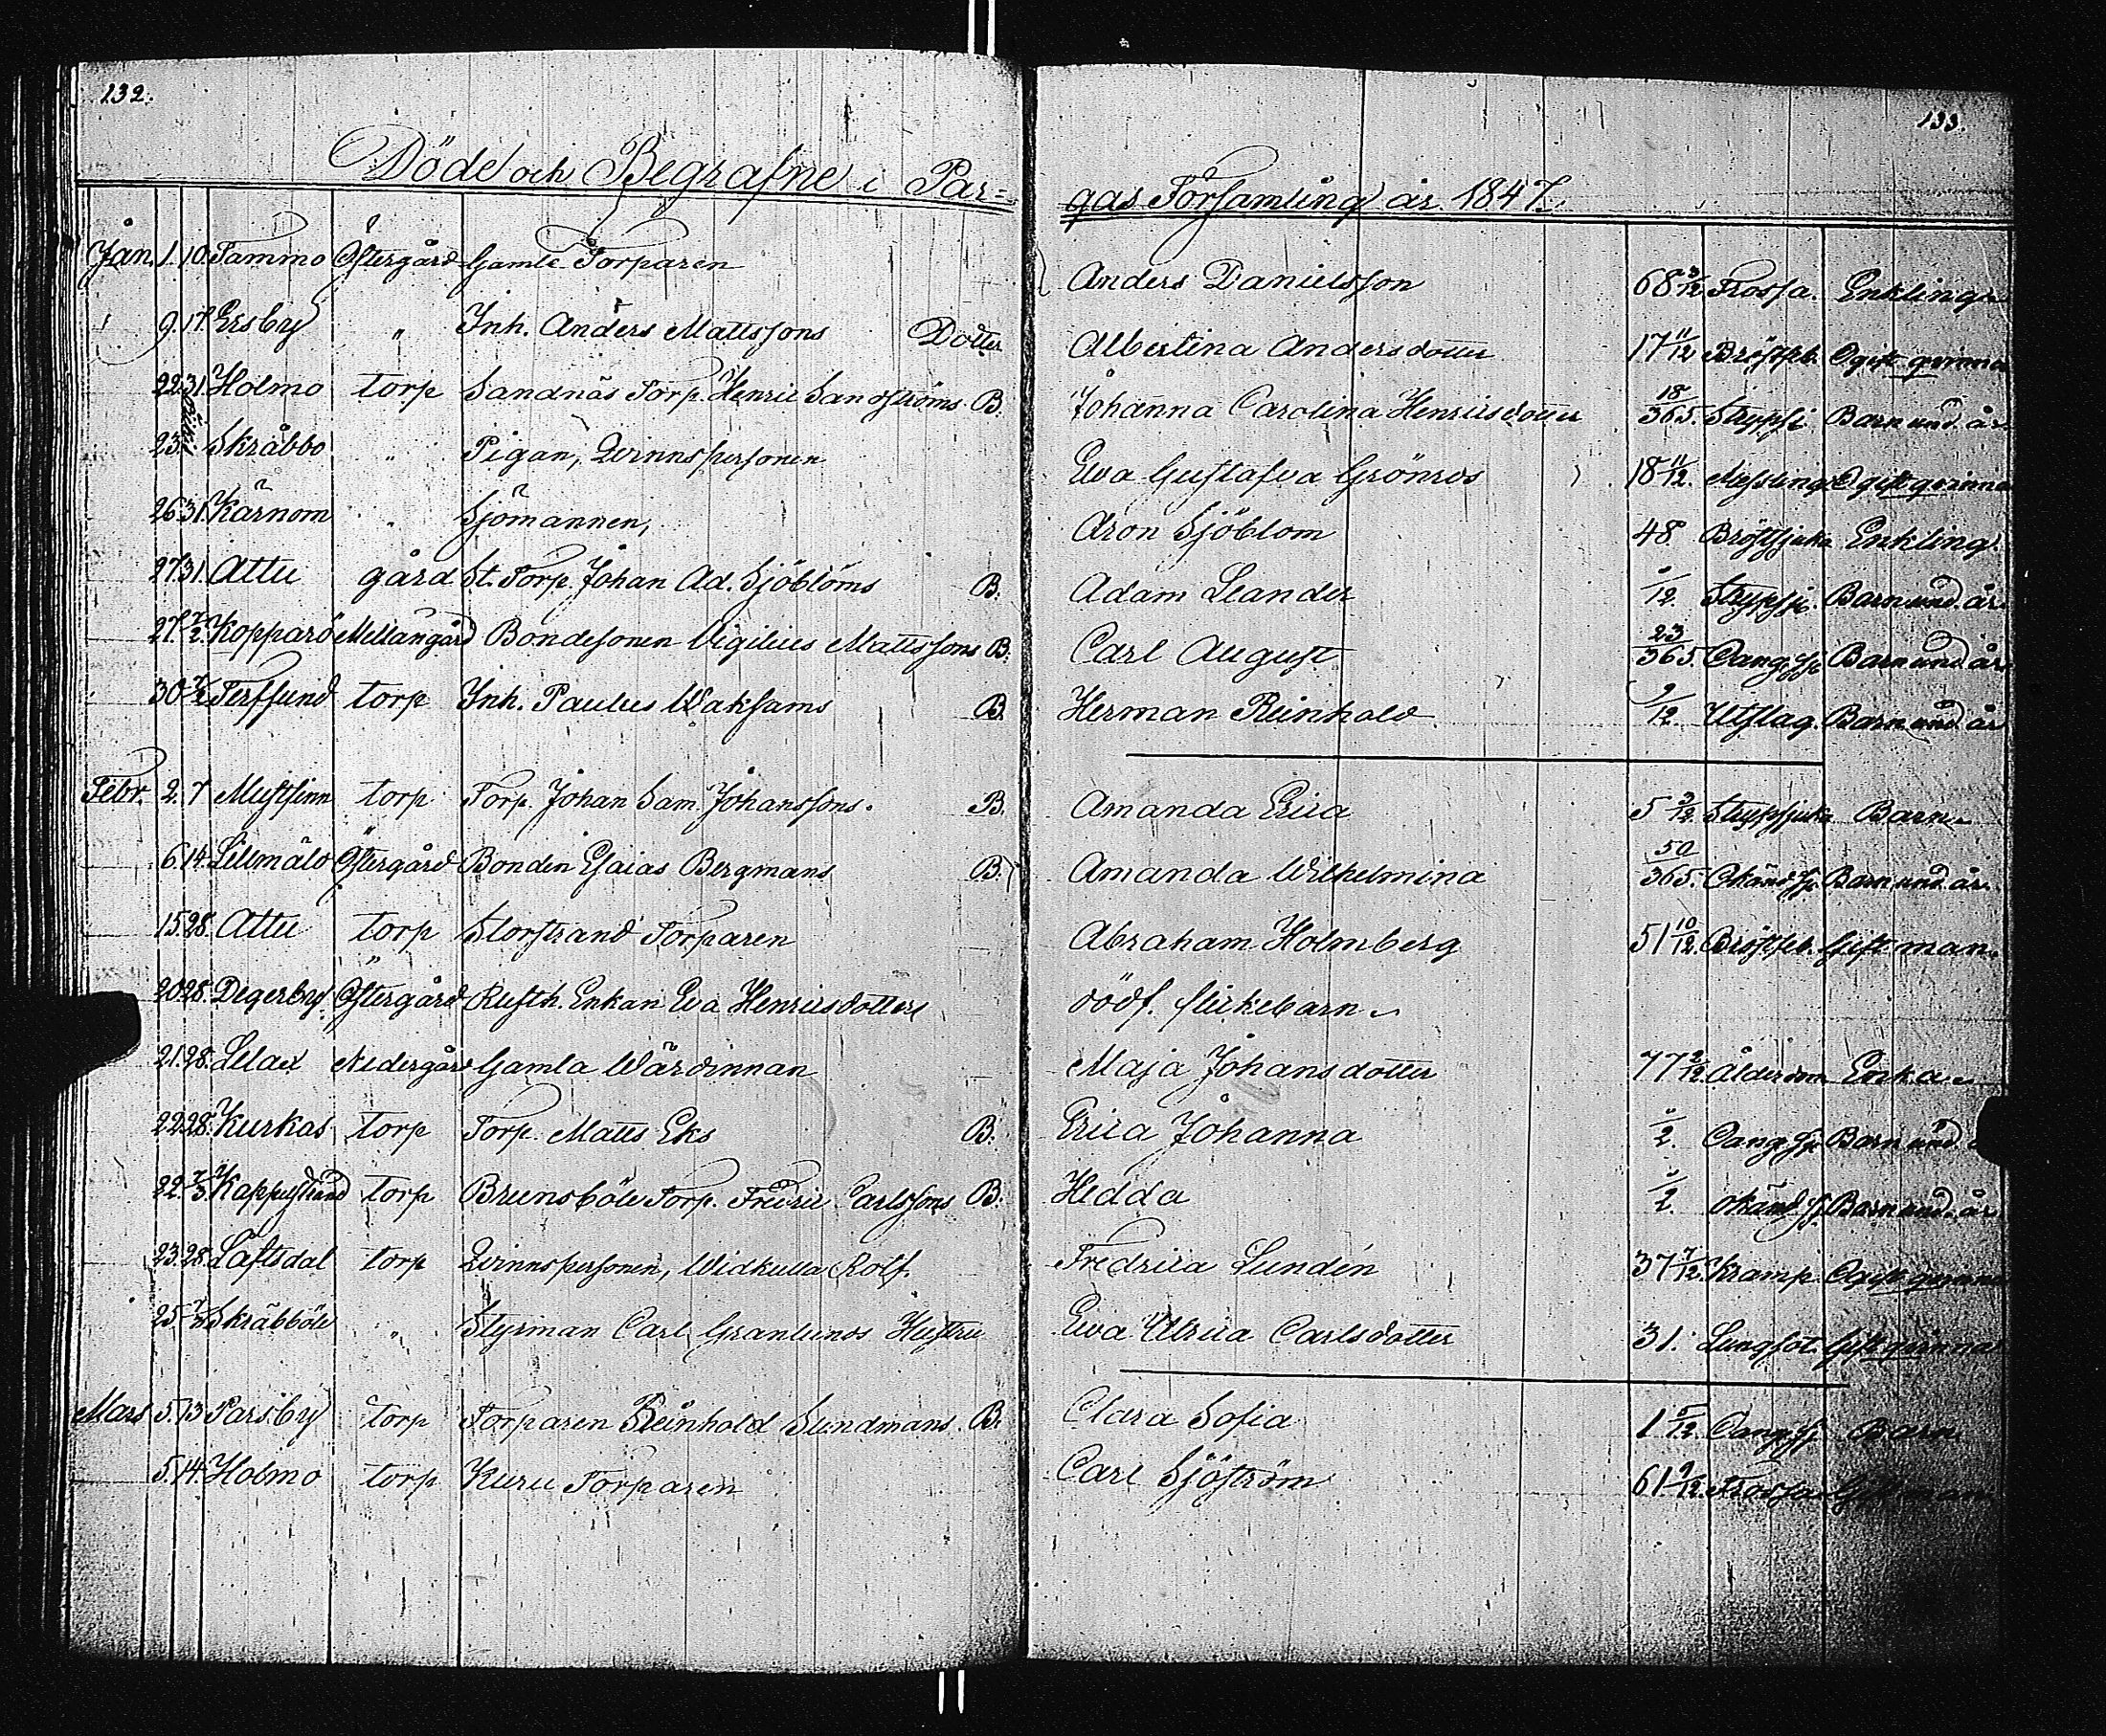 132.
133.
Döde och Begrafne i Par=
gas Församling år 1847.
Jan. 1. 10. Tammo Östergård Gamle Torparen Anders Danielsson 68 3/12 Frossa. Enkling
9. 17. Ersby " Inh. Anders Mattssons Dotter Albertina Andersdotter 17 11/12 Bröstfeb. Ogift qvinna
22. 31. Holmo torp Sandnäs Torp. Henric Sandströms B. Johanna Carolina Henricsdotter 18/365. Strypsj. Barn und. år.
23. Skråbbo " Pigan, Qvinnspersonen Eva Gustafva Grönroos 18 11/12. Messling Ogift qvinna
26. 31. Kärnom " Sjömannen, Aron Sjöblom 48 Bröstsjuka Enkling.
27. 31. Attu gård St. Torp. Johan Ad. Sjöbloms B. Adam Leander /12. Strypsj. Barn und. år.
27. 7/2. Kopparö Mellangård Bondesonen Vigilius Mattssons B. Carl August 23/365. Oang. sj. Barn und. år.
30. 7/2 Terfsund torp Inh. Paulus Waksams B. Herman Reinhold 9/12. Utslag. Barn und. år
Febr. 2. 7 Mustfinn torp Torp. Johan Sam. Johanssons. B. Amanda Erica 5 /12. Strypsjuka Barn
6. 14. Lillmälo Östergård Bonden Esaias Bergmans B. Amanda Wilhelmina 50/365. Okänd sj. Barn und. år.
15. 28. Attu torp Storstrand Torparen Abraham Holmberg 51 10/12. Bröstfeb. Gift man.
20. 28. Degerby Östergård Rusth. Enkan Eva Henricsdotters dödf. flickebarn
21. 28. Lilax Nedergård Gamla Wärdinnan Maja Johansdotter 77 2/12. Ålderdom Enka
22. 28. Kurkas torp Torp. Matts Eks B. Erica Johanna 1/2. Oang. sj. Barn und.
22. 7/3 Kappelstrand torp Brunsböle Torp. Fredric Carlssons B. Hedda 1/2. okänd sj. Barn und. år
23. 28. Laftsdal torp Qvinnspersonen, Widkulla Rotf. Fredrica Lundén 37 7/12. Kramp. Ogift qvinna
25. 7/3 Skräbböle " Styrman Carl Granlunds Hustru Eva Ulrica Carlsdotter 31. Lungsot. Gift qvinna
Mars 5. 13 Parsby torp Torparen Reinhold Sundmans. B. Clara Sofia 1 5/12. Oang. sj. Barn
5. 14. Holmo torp Kuru Torparen Carl Sjöström 61 9/12. Frossa Gift man